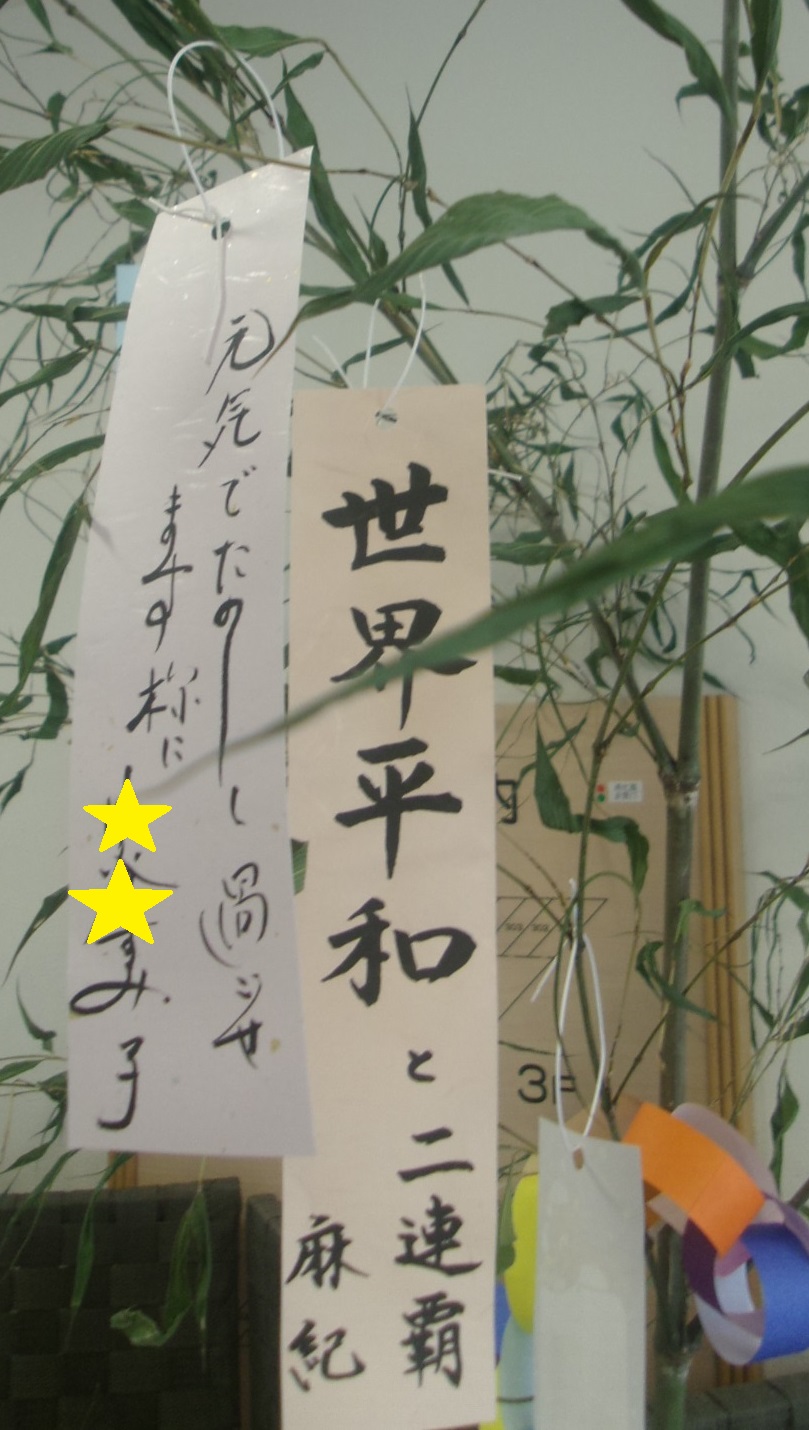 世界平和と二連覇
麻紀
元気でたのしく過ごせ
ます様に
すみ子
内
3F